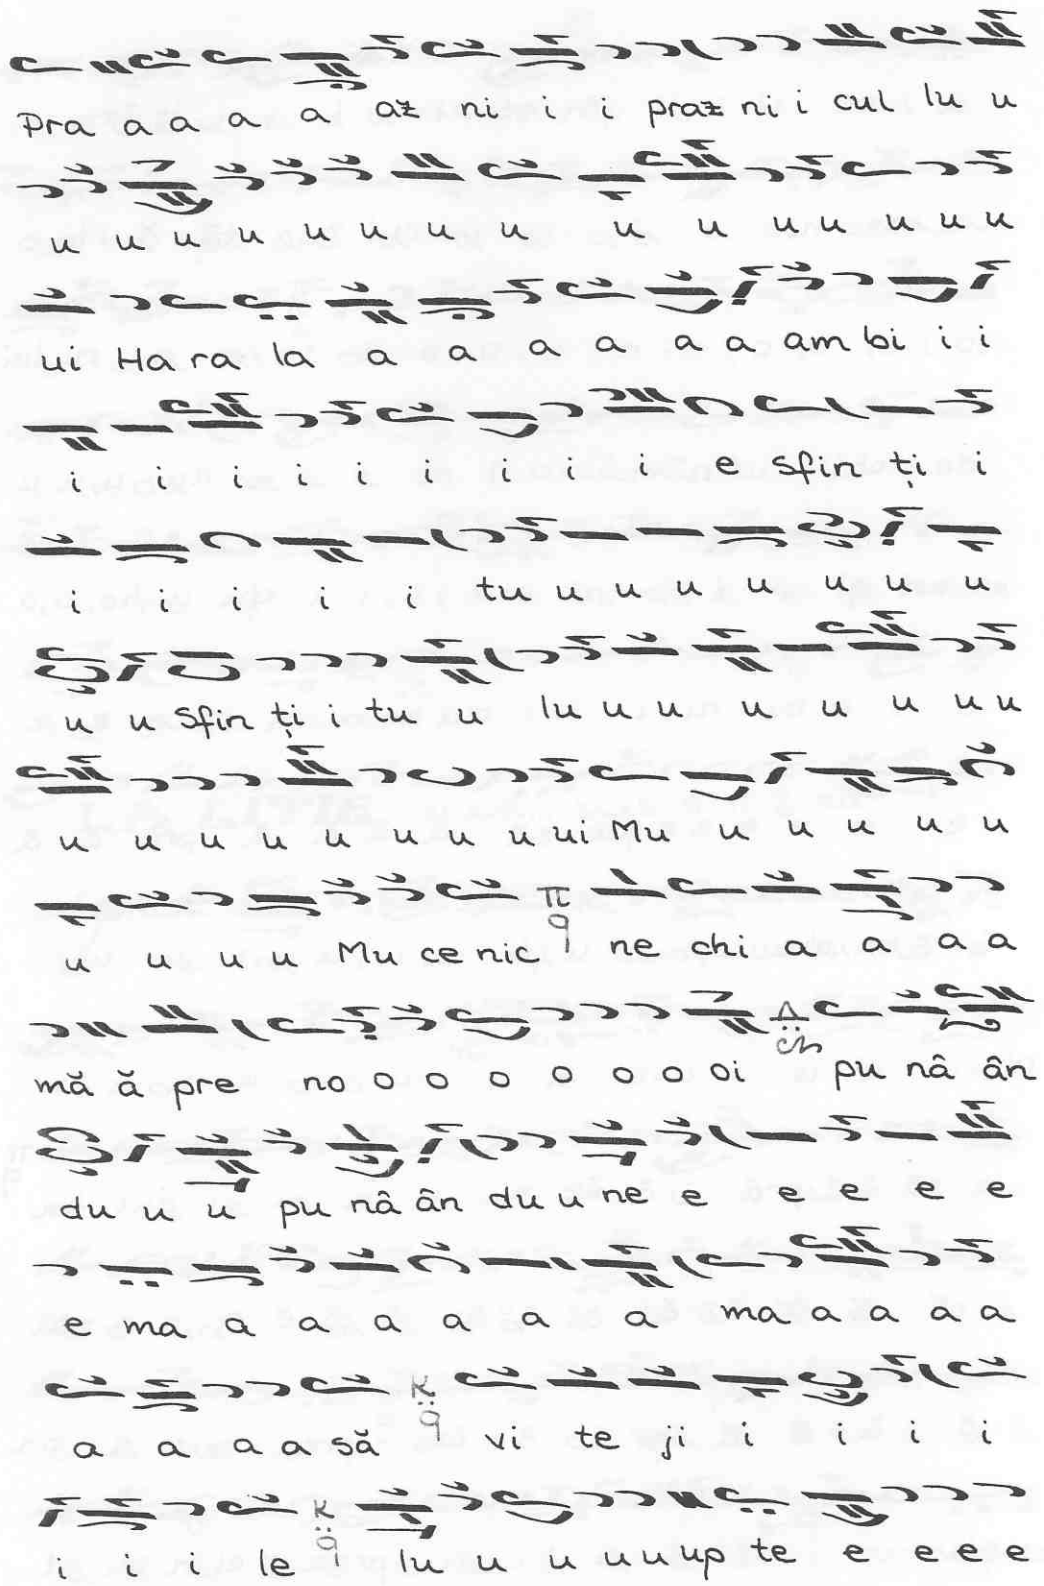 Pra a a a a az ni i i praz ni i cul lu u
u u u u u u u u u u u u u u u
ui Ha ra la a a a a a a am bi i i
i i i i i i i i i e sfin ți i
i i i i i tu u u u u u u u
u u Sfin ți i tu u lu u u u u u u u
u u u u u u u u ui Mu u u u u u
u u u u Mu ce nic π q ne chi a a a a
mă ă pre no o o o o o o oi Δ pu nâ ân
du u u pu nâ ân du u ne e e e e e
e ma a a a a a a ma a a a a
a a a a să κ q vi te ji i i i i
i i i le κ q lu u u u u up te e e e e